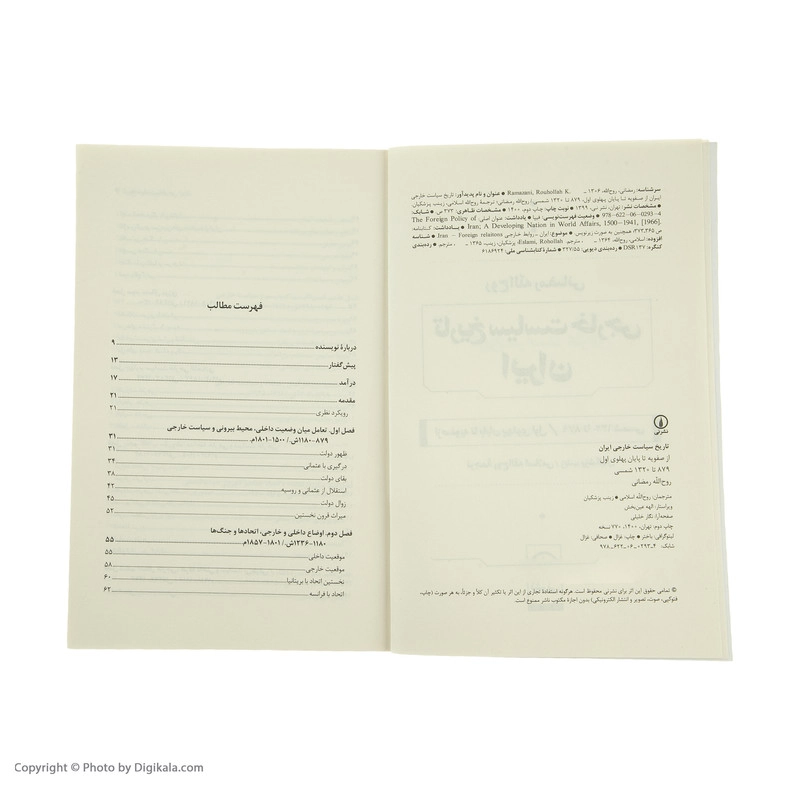 سرشناسه: رمضانی، روح‌الله، ۱۳۰۶ - Ramazani, Rouhollah K. ● عنوان و نام پدیدآور: تاریخ سیاست خارجی
ایران از صفویه تا پایان پهلوی اول، ۸۷۹ تا ۱۳۲۰ شمسی/ روح‌الله رمضانی؛ ترجمهٔ روح‌الله اسلامی، زینب پزشکیان
● مشخصات نشر: تهران، نشر نی، ۱۳۹۹ ● نوبت چاپ: چاپ دوم، ۱۴۰۰ ● مشخصات ظاهری: ۳۷۳ ص ● شابک:
978-622-06-0293-4 ● وضعیت فهرست‌نویسی: فیپا ● یادداشت: عنوان اصلی: The Foreign Policy of
Iran; A Developing Nation in World Affairs, 1500-1941, [1966]. ● یادداشت: کتابنامه:
ص ۳۶۵-۳۷۳؛ همچنین به صورت زیرنویس. ● موضوع: ایران ـ روابط خارجی Iran — Foreign relations ● شناسه
افزوده: اسلامی، روح‌الله، ۱۳۶۲ - ، مترجم Eslami, Rohollah؛ پزشکیان، زینب، ۱۳۶۵ - ، مترجم ● رده‌بندی
کنگره: DSR۱۳۷ ● رده‌بندی دیویی: ۳۲۷/۵۵ ● شمارهٔ کتابشناسی ملی: ۶۱۸۶۹۲۴
نشر نی
تاریخ سیاست خارجی ایران
از صفویه تا پایان پهلوی اول
۸۷۹ تا ۱۳۲۰ شمسی
روح‌الله رمضانی
مترجمان: روح‌الله اسلامی ● زینب پزشکیان
ویراستار: الهه عین‌بخش
صفحه‌آرا: نگار خلیلی
چاپ دوم: تهران، ۱۴۰۰، ۷۷۰ نسخه
لیتوگرافی: باختر ● چاپ: غزال ● صحافی: غزال
شابک: ۴-۰۲۹۳-۰۶-۶۲۲-۹۷۸
© تمامی حقوق این اثر برای نشر نی محفوظ است. هرگونه استفادهٔ تجاری از این اثر یا تکثیر آن کلاً و جزئاً، به هر صورت (چاپ،
فتوکپی، صوت، تصویر و انتشار الکترونیکی) بدون اجازهٔ مکتوب ناشر ممنوع است.
فهرست مطالب
دربارهٔ نویسنده ۹
پیش‌گفتار ۱۳
درآمد ۱۷
مقدمه ۲۱
رویکرد نظری ۲۱
فصل اول. تعامل میان وضعیت داخلی، محیط بیرونی و سیاست خارجی
۸۷۹-۱۱۸۰ش./ ۱۵۰۰-۱۸۰۱م. ۳۱
ظهور دولت ۳۱
درگیری با عثمانی ۳۴
بقای دولت ۳۸
استقلال از عثمانی و روسیه ۴۲
زوال دولت ۴۵
میراث قرون نخستین ۵۲
فصل دوم. اوضاع داخلی و خارجی، اتحادها و جنگ‌ها
۱۱۸۰-۱۲۳۶ش./ ۱۸۰۱-۱۸۵۷م. ۵۵
موقعیت داخلی ۵۵
موقعیت خارجی ۵۸
نخستین اتحاد با بریتانیا ۶۰
اتحاد با فرانسه ۶۲
Copyright © Photo by Digikala.com